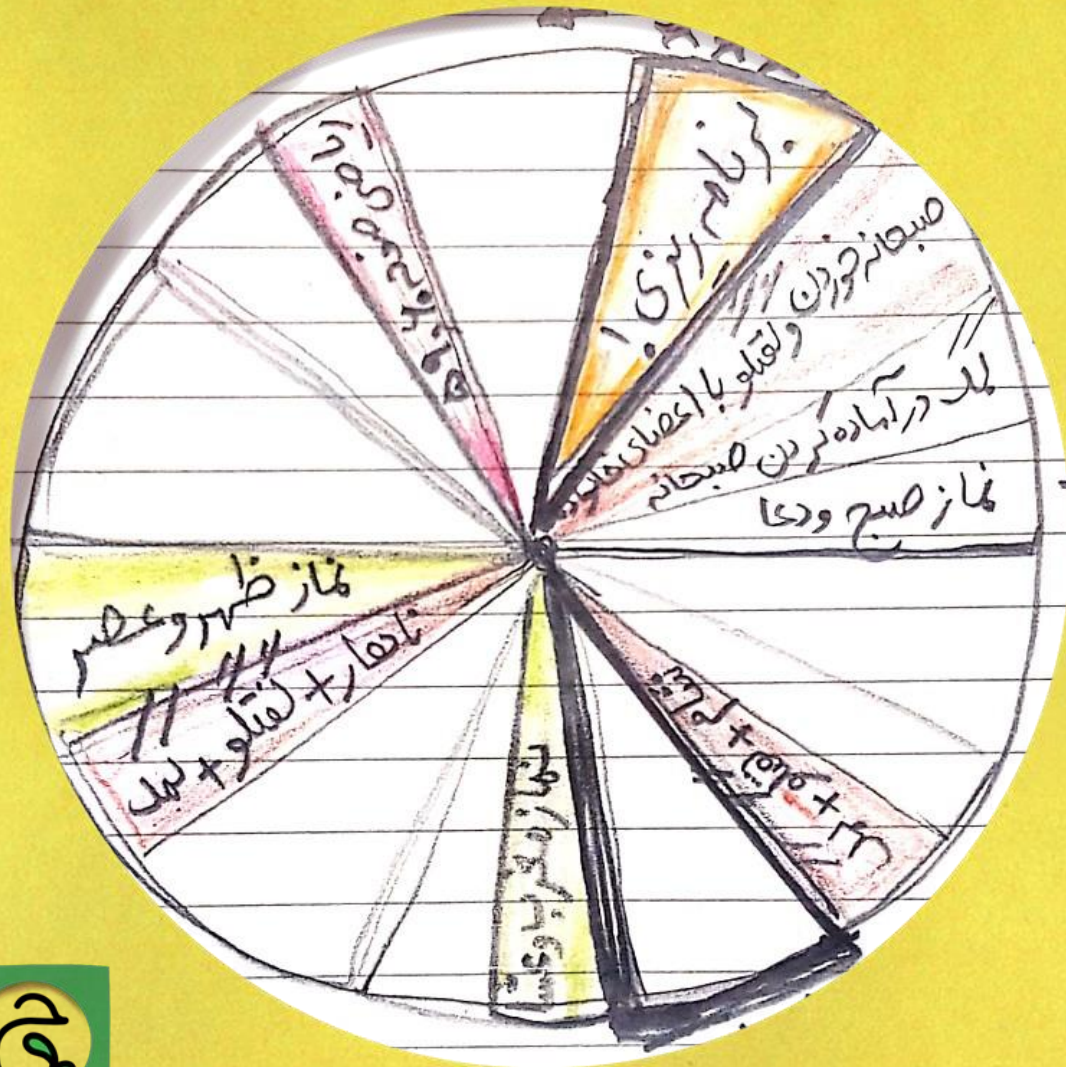 برنامه ریزی!
صبحانه خوردن و گفتگو با اعضای خانواده
کمک در آماده کردن صبحانه
نماز صبح و دعا
کمک + گفتگو + شام
نماز مغرب و عشا
ناهار + گفتگو + کمک
نماز ظهر و عصر